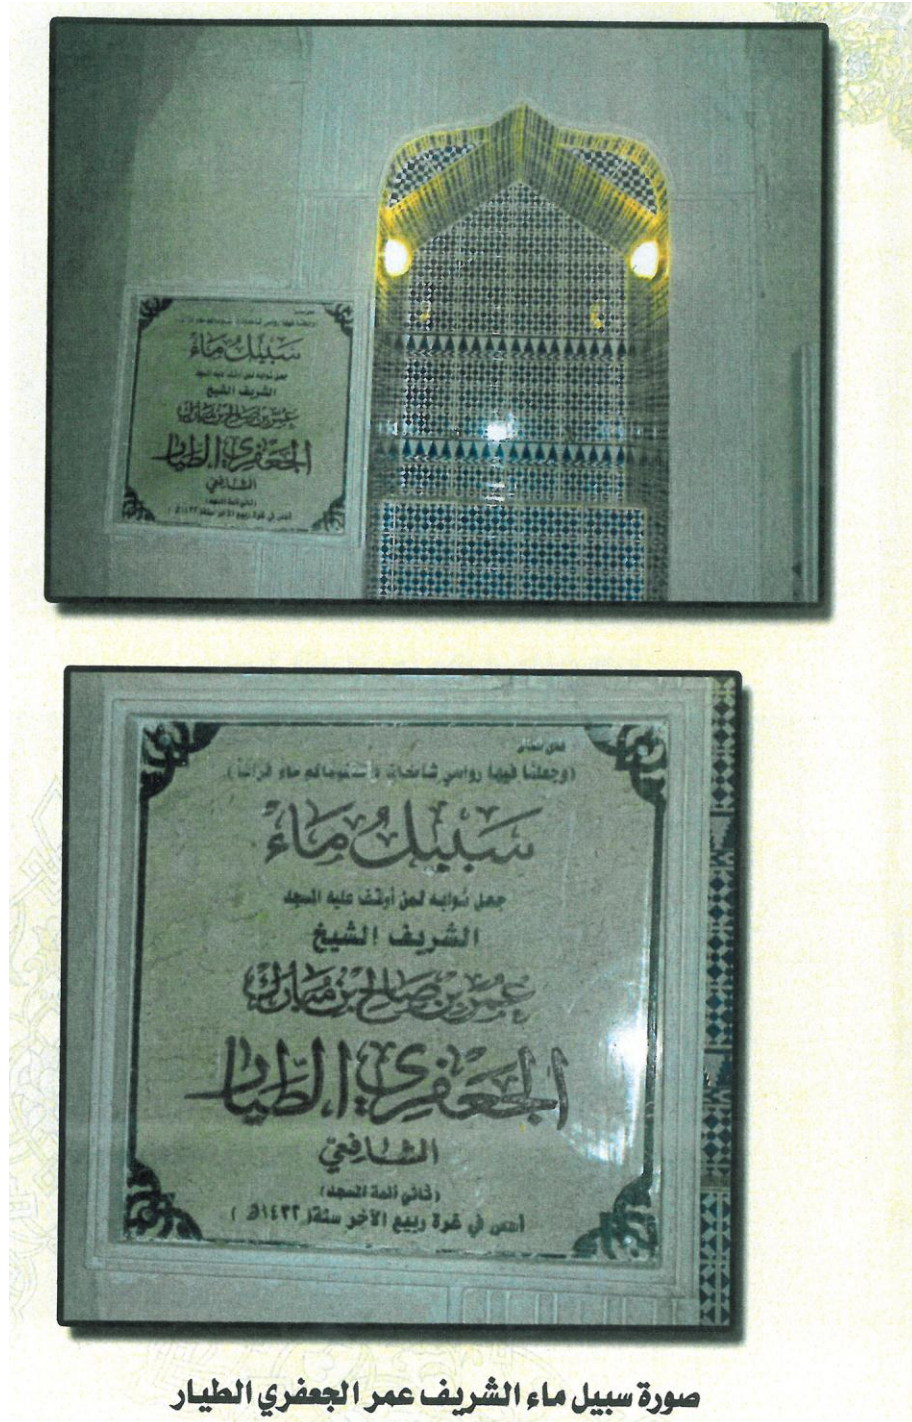 سَبيلُ مَاءْ
الشريف الشيخ
عمر بن صالح بن مبارك
الجعفري الطيار
الشافعي
قال تعالى
(وجعلنا فيها رواسي شامخات وأسقيناكم ماء فراتاً)
سَبيلُ مَاءْ
جعل ثوابه لمن أوقف عليه المسجد
الشريف الشيخ
عمر بن صالح بن مبارك
الجعفري الطيار
الشافعي
(ثاني أئمة المسجد)
أسس في غرة ربيع الآخر سنة( ١٤٣٢هـ )
صورة سبيل ماء الشريف عمر الجعفري الطيار